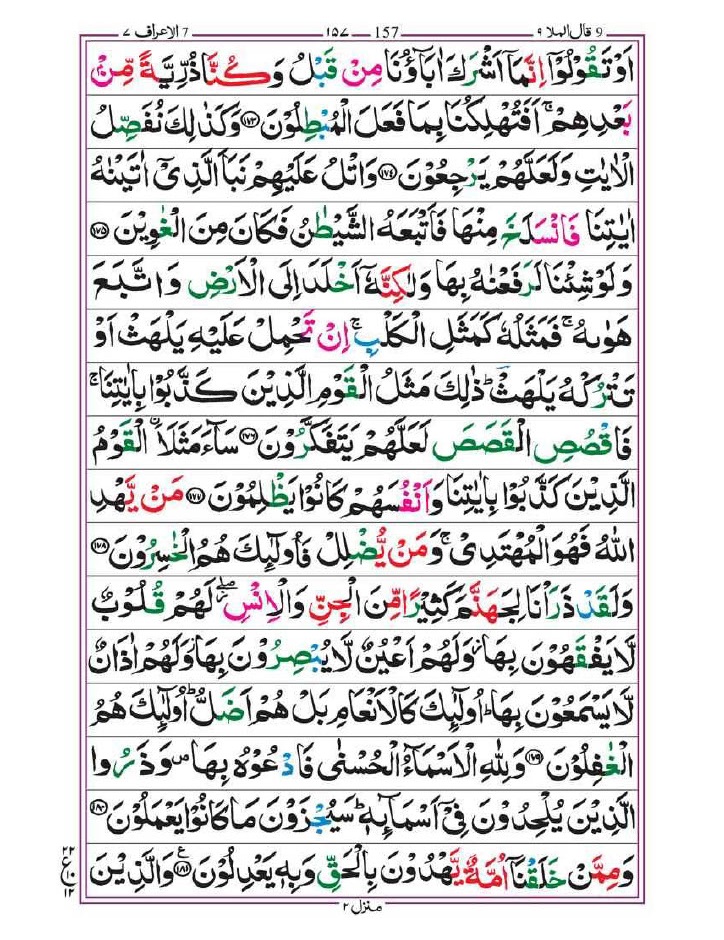 9 قال الملا ۹ — 157 — ۱۵۷ — 7 الاعراف ۷
اَوْ تَقُوْلُوْۤا اِنَّمَاۤ اَشْرَكَ اٰبَآؤُنَا مِنْ قَبْلُ وَكُنَّا ذُرِّيَّةً مِّنْۢ
بَعْدِهِمْ ۚ اَفَتُهْلِكُنَا بِمَا فَعَلَ الْمُبْطِلُوْنَ ﴿۱۷۳﴾ وَكَذٰلِكَ نُفَصِّلُ
الْاٰيٰتِ وَلَعَلَّهُمْ يَرْجِعُوْنَ ﴿۱۷۴﴾ وَاتْلُ عَلَيْهِمْ نَبَاَ الَّذِىْۤ اٰتَيْنٰهُ
اٰيٰتِنَا فَانْسَلَخَ مِنْهَا فَاَتْبَعَهُ الشَّيْطٰنُ فَكَانَ مِنَ الْغٰوِيْنَ ﴿۱۷۵﴾
وَلَوْ شِئْنَا لَرَفَعْنٰهُ بِهَا وَلٰكِنَّهٗۤ اَخْلَدَ اِلَى الْاَرْضِ وَاتَّبَعَ
هَوٰىهُ ۚ فَمَثَلُهٗ كَمَثَلِ الْكَلْبِ ۚ اِنْ تَحْمِلْ عَلَيْهِ يَلْهَثْ اَوْ
تَتْرُكْهُ يَلْهَثْ ؕ ذٰلِكَ مَثَلُ الْقَوْمِ الَّذِيْنَ كَذَّبُوْا بِاٰيٰتِنَا ۚ
فَاقْصُصِ الْقَصَصَ لَعَلَّهُمْ يَتَفَكَّرُوْنَ ﴿۱۷۶﴾ سَآءَ مَثَلَا ۨ الْقَوْمُ
الَّذِيْنَ كَذَّبُوْا بِاٰيٰتِنَا وَاَنْفُسَهُمْ كَانُوْا يَظْلِمُوْنَ ﴿۱۷۷﴾ مَنْ يَّهْدِ
اللّٰهُ فَهُوَ الْمُهْتَدِىْ ۚ وَمَنْ يُّضْلِلْ فَاُولٰٓئِكَ هُمُ الْخٰسِرُوْنَ ﴿۱۷۸﴾
وَلَقَدْ ذَرَاْنَا لِجَهَنَّمَ كَثِيْرًا مِّنَ الْجِنِّ وَالْاِنْسِ ۖ لَهُمْ قُلُوْبٌ
لَّا يَفْقَهُوْنَ بِهَا ؗ وَلَهُمْ اَعْيُنٌ لَّا يُبْصِرُوْنَ بِهَا ؗ وَلَهُمْ اٰذَانٌ
لَّا يَسْمَعُوْنَ بِهَا ؕ اُولٰٓئِكَ كَالْاَنْعَامِ بَلْ هُمْ اَضَلُّ ؕ اُولٰٓئِكَ هُمُ
الْغٰفِلُوْنَ ﴿۱۷۹﴾ وَلِلّٰهِ الْاَسْمَآءُ الْحُسْنٰى فَادْعُوْهُ بِهَا ۪ وَذَرُوا
الَّذِيْنَ يُلْحِدُوْنَ فِىْۤ اَسْمَآئِهٖ ؕ سَيُجْزَوْنَ مَا كَانُوْا يَعْمَلُوْنَ ﴿۱۸۰﴾
وَمِمَّنْ خَلَقْنَاۤ اُمَّةٌ يَّهْدُوْنَ بِالْحَقِّ وَبِهٖ يَعْدِلُوْنَ ﴿۱۸۱﴾ ع وَالَّذِيْنَ
۲۲ ع ۱۰ ۱۲
منزل ۲